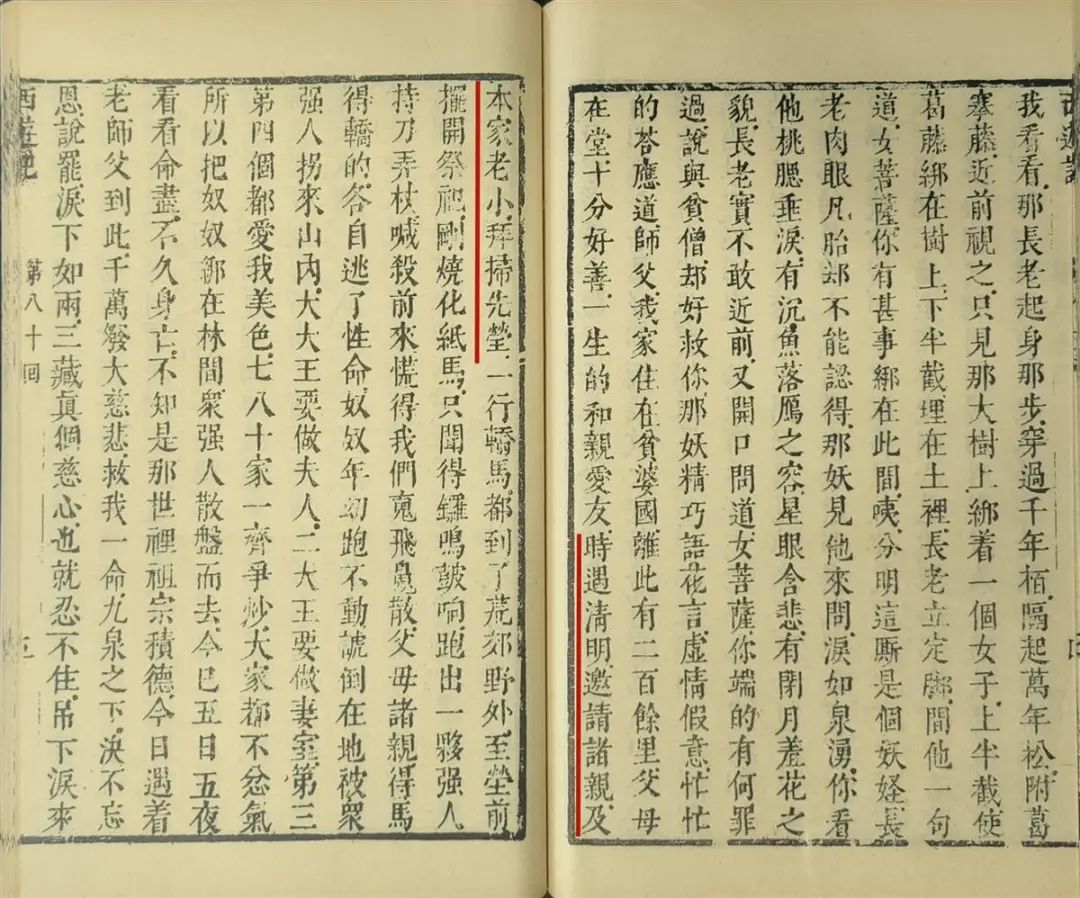 我看看那長老起身那步穿過千年栢隔起萬年松附葛
攀藤近前視之只見那大樹上綁着一個女子上半截使
葛藤綁在樹上下半截埋在土裡長老立定脚問他一句
道女菩薩你有甚事綁在此間咦分明這厮是個妖怪長
老肉眼凡胎却不能認得那妖見他來問淚如泉湧你看
他桃腮垂淚有沉魚落鴈之容星眼含悲有閉月羞花之
貌長老實不敢近前又開口問道女菩薩你端的有何罪
過說與貧僧却好救你那妖精巧語花言虛情假意忙忙
的荅應道師父我家住在貧婆國離此有二百餘里父母
在堂十分好善一生的和親愛友時遇清明邀請諸親及
本家老小拜掃先塋一行轎馬都到了荒郊野外至塋前
擺開祭祀剛燒化紙馬只聞得鑼鳴皷响跑出一夥强人
持刀弄杖喊殺前來慌得我們䰟飛魄散父母諸親得馬
得轎的各自逃了性命奴奴年幼跑不動諕倒在地被衆
强人拐來山內大大王要做夫人二大王要做妻室第三
第四個都愛我美色七八十家一齊爭炒大家都不忿氣
所以把奴奴綁在林間衆强人散盤而去今已五日五夜
看看命盡不久身亡不知是那世裡祖宗積德今日遇着
老師父到此千萬發大慈悲救我一命九泉之下決不忘
恩說罷淚下如雨三藏眞個慈心也就忍不住吊下淚來
西遊記
第八十回